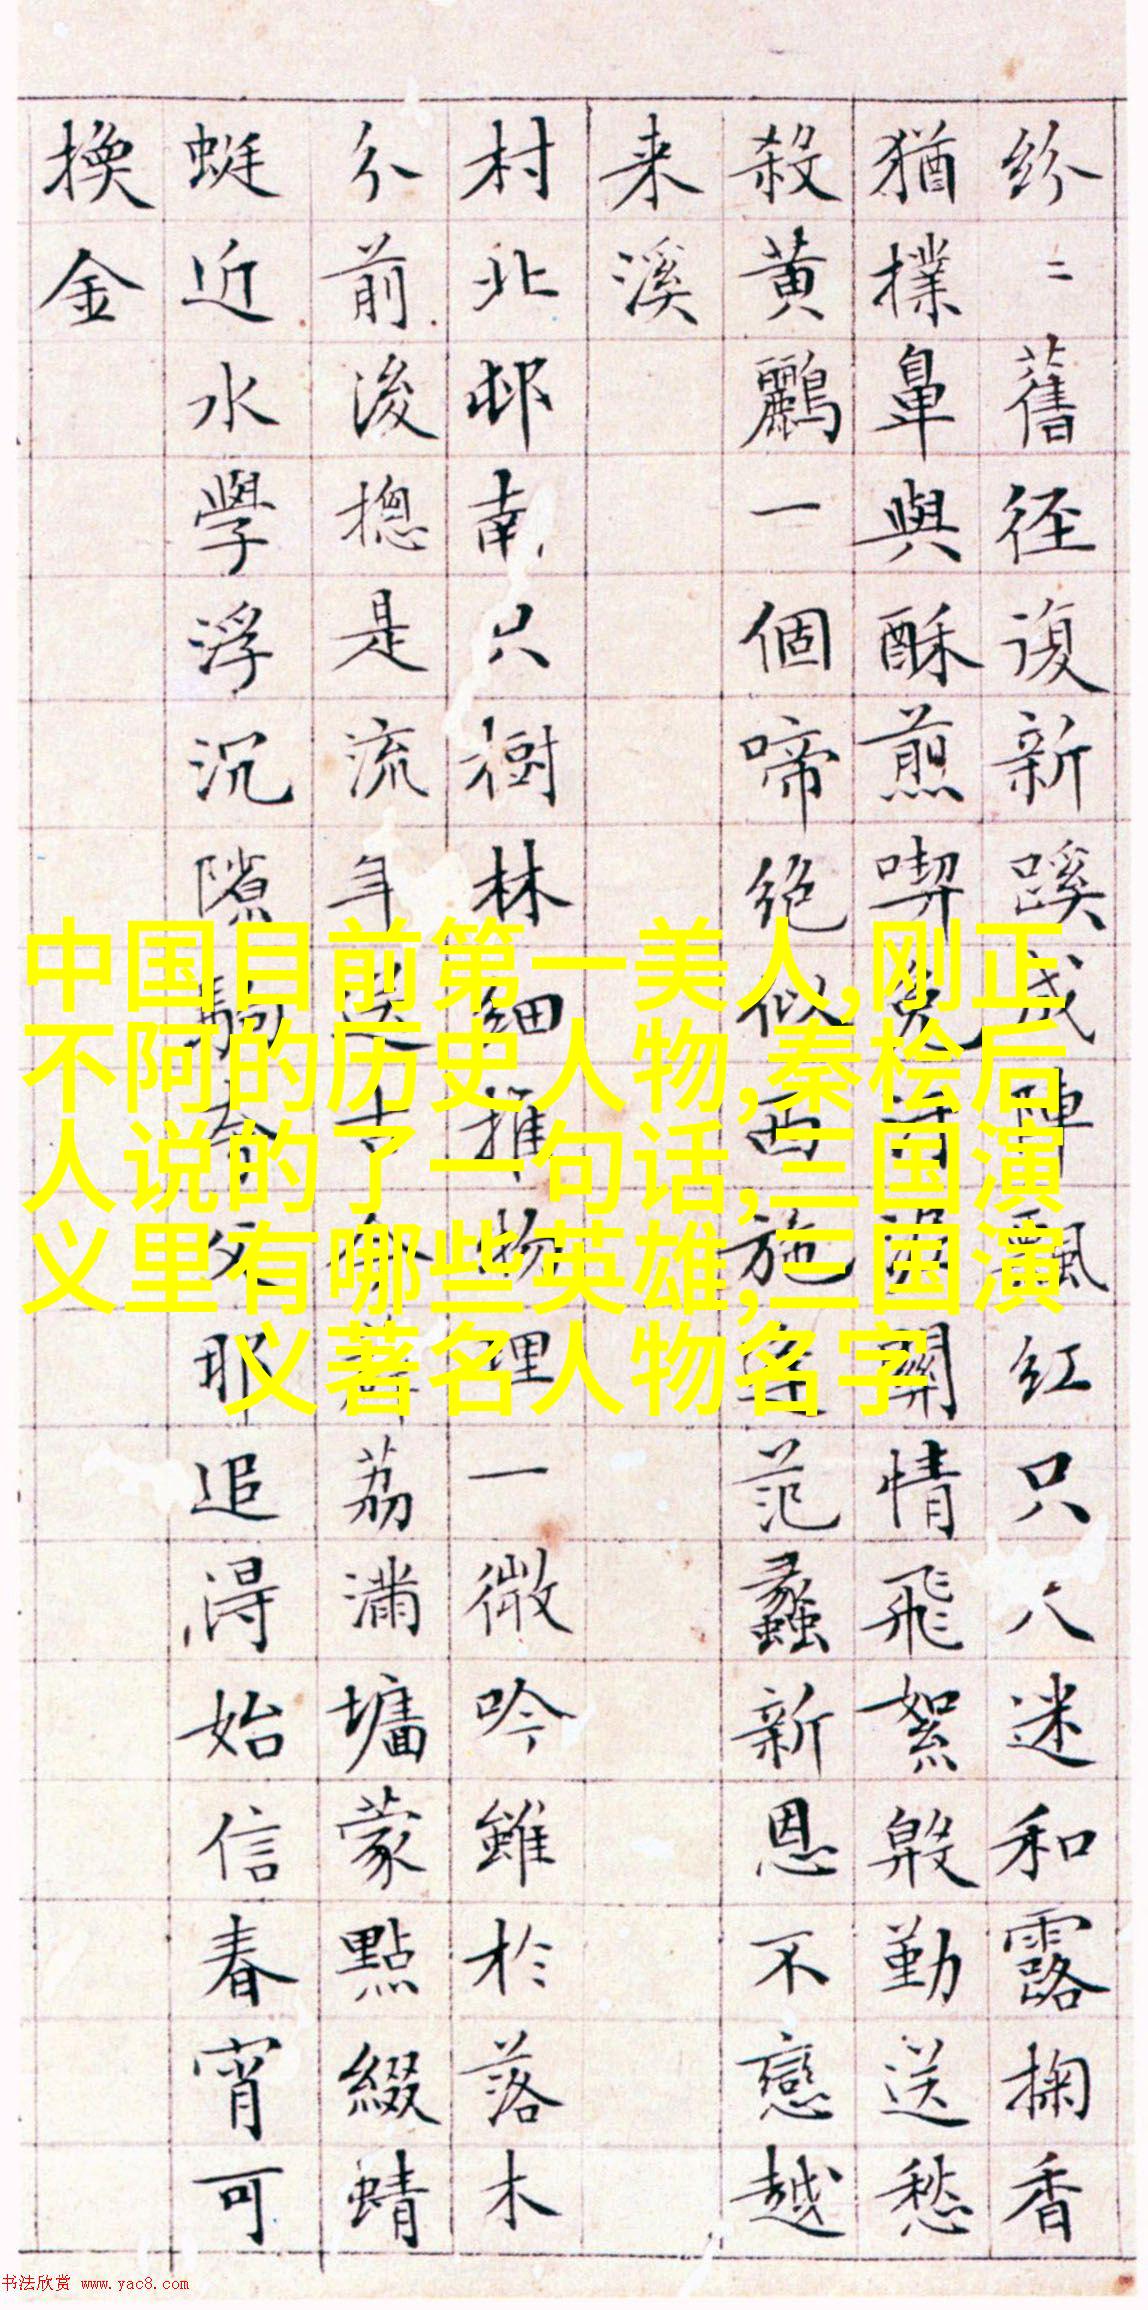 紛〻舊徑復新蹊成陣飄紅只迷和露掬香
猶撲鼻與酥煎喫免關情飛絮殷勤送愁
殺黃鸝一個啼絶似西施范蠡新恩不戀越
来溪
村北邨南只樹林細推物理一微吟雖於落木
分前後揔是流年送古今荔滿墉蒙點綴蜻
蜓近水學浮沉隙駒奈耶追得始信春宵可
換金
中国目前第一美人,刚正
不阿的历史人物,秦桧后
人说的了一句话,三国演
义里有哪些英雄,三国演
义著名人物名字
书法欣赏 www.yac8.com